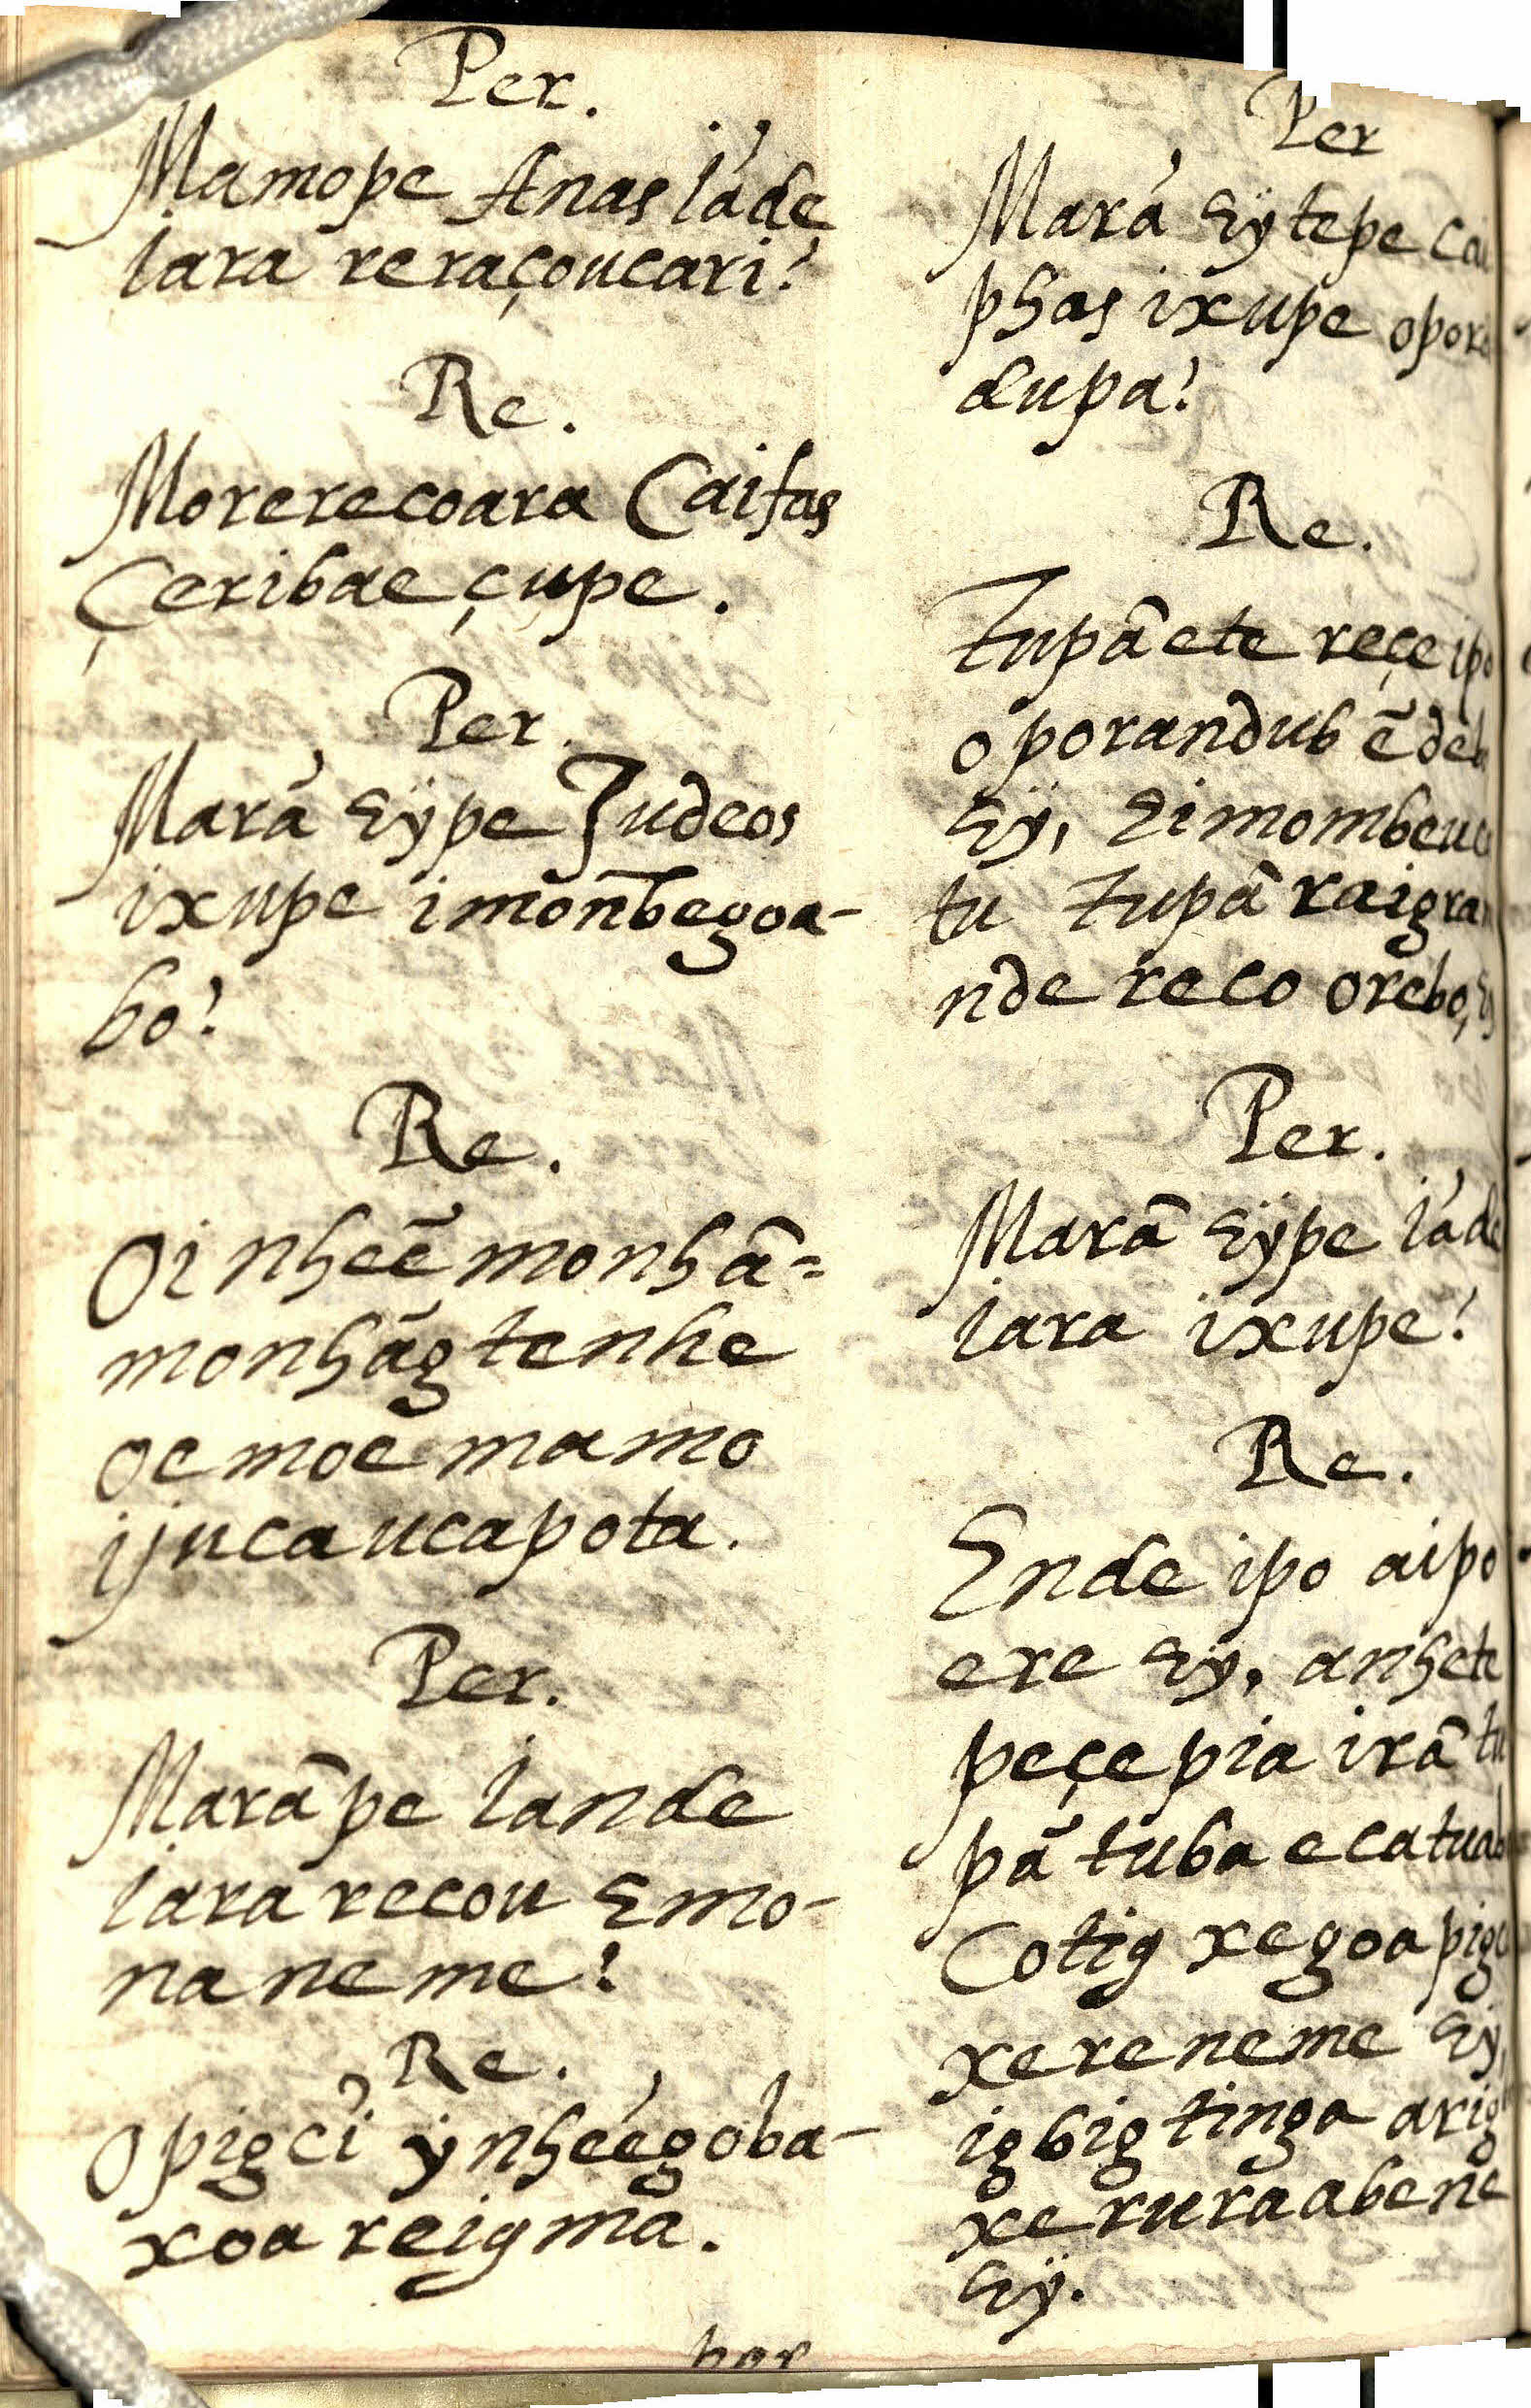 Per.
Mamope Anas iãde
iara reraçoucari?
Re.
Morerecoara Caifas
Çeribae çupe.
Per.
Marã eÿpe Judeos
ixupe imonbegoa-
bo?
Re.
Oi nheẽ monhã=
monhãg tenhe
oemoẽ mamo
ijucaucapota.
Per.
Marãpe iande
iara recou Emo-
na neme?
Re.
Opigci ÿnheégoba-
xoareigmã.
Per
Marã eÿtepe Cai
phas ixupe opora
dupa?
Re.
Tupã ete reçe ipo
oporandub ẽdeb
eÿ, eimombeuca
tu Tupã raigra
nde reco orebo,
Per.
Marã eÿpe iãde
iara ixupe?
Re.
Ende ipo aipo
ere eÿ, anhete
peçepia irã tu
pã tuba ecatuab
Cotig xegoapigc
xereneme eÿ,
igbig tinga arig
xe rurãabene
eÿ.